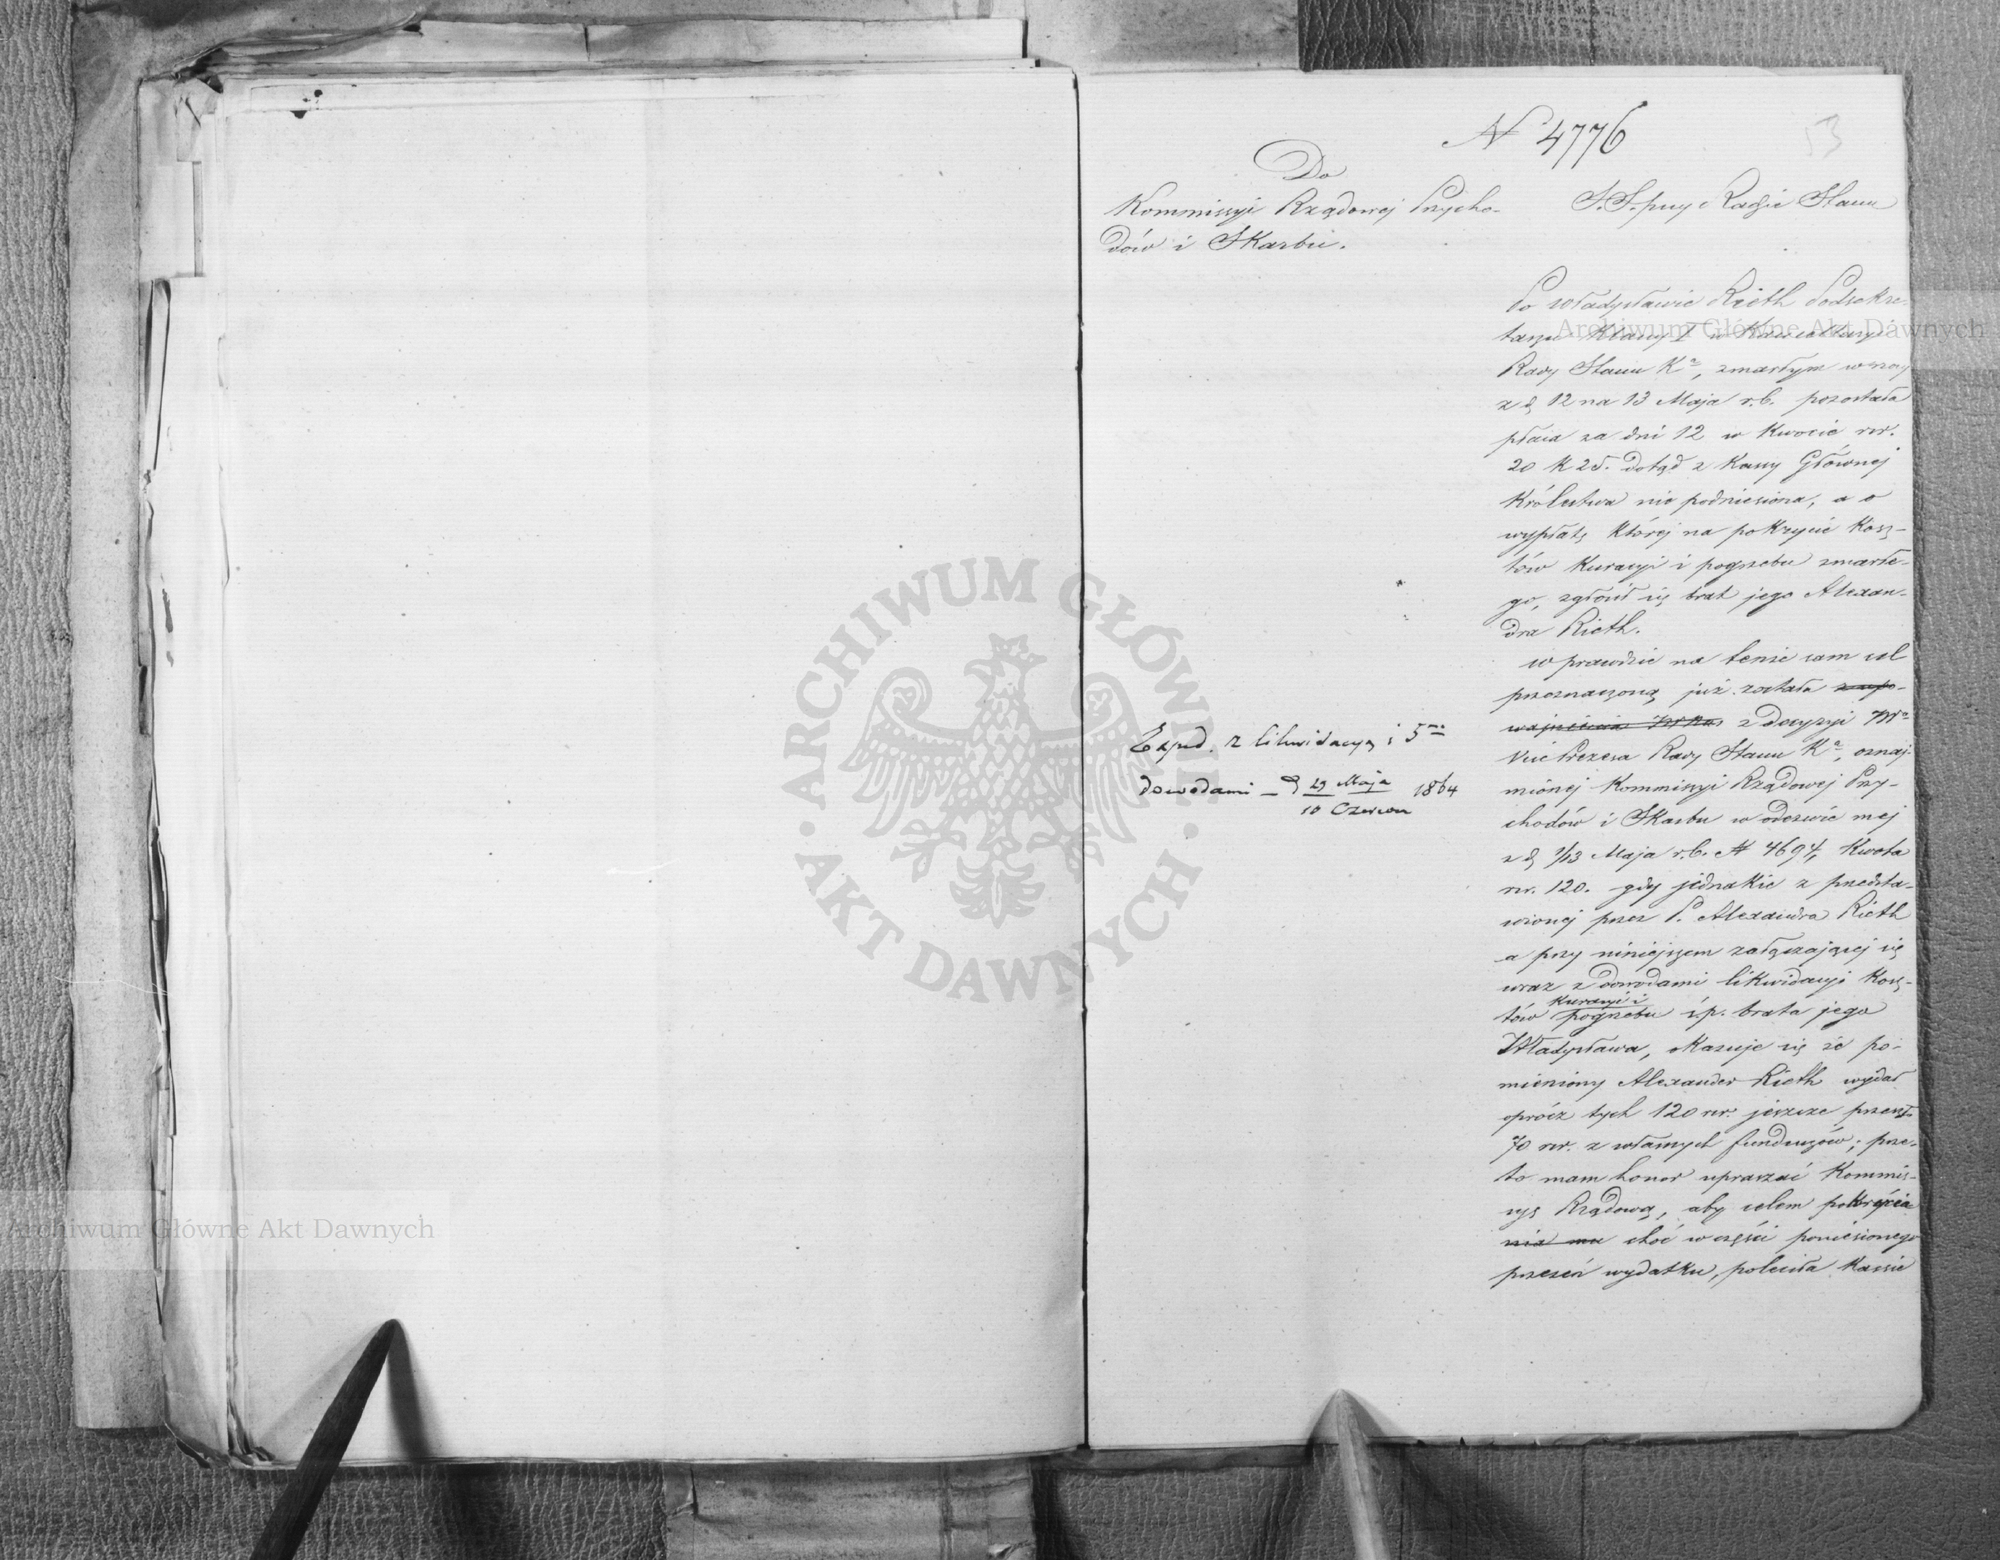 N 4776
53
Do
Kommissyi Rządowej Przycho-
dów i Skarbu.
S. S. przy Radzie Stanu
Po Władysławie Rieth Podsekre-
tarzu Klassy I w Kancellaryi
Rady Stanu Kª, zmarłym w nocy
z d. 12 na 13 Maja r.b. pozostała
płaca za dni 12 w kwocie rsr.
20 k 25. dotąd z Kassy Głównej
Królestwa nie podniesiona, a o
wypłatę której na pokrycie kosz-
tów kuracyi i pogrzebu zmarłe-
go, zgłosił się brat jego Alexan-
dra Rieth.
w prawdzie na tenże sam cel
przeznaczoną już została
z decyzyi JWº
Vice Prezesa Rady Stanu Kª, oznaj-
mionej Kommissyi Rządowej Przy-
chodów i Skarbu w odezwie mej
z d. 1/13 Maja r.b. N 4694, kwota
rsr. 120. gdy jednakże z przedsta-
wionej przez P. Alexandra Rieth
a przy niniejszem załączającej się
wraz z dowodami likwidacyi kosz-
tów kuracyi i pogrzebu ś.p. brata jego
Władysława, okazuje się że po-
mieniony Alexander Rieth wydał
oprócz tych 120 rsr. jeszcze przeszł.
70 rsr. z własnych funduszów; prze-
to mam honor upraszać Kommis-
syę Rządową, aby celem pokrycia
nia mu choć w części poniesionego
przezeń wydatku, poleciła Kassie
Exped. z likwidacyą i 5ma
dowodami – d 29 Maja / 10 Czerwca 1864
ARCHIWUM GŁÓWNE
AKT DAWNYCH
Archiwum Główne Akt Dawnych
Archiwum Główne Akt Dawnych